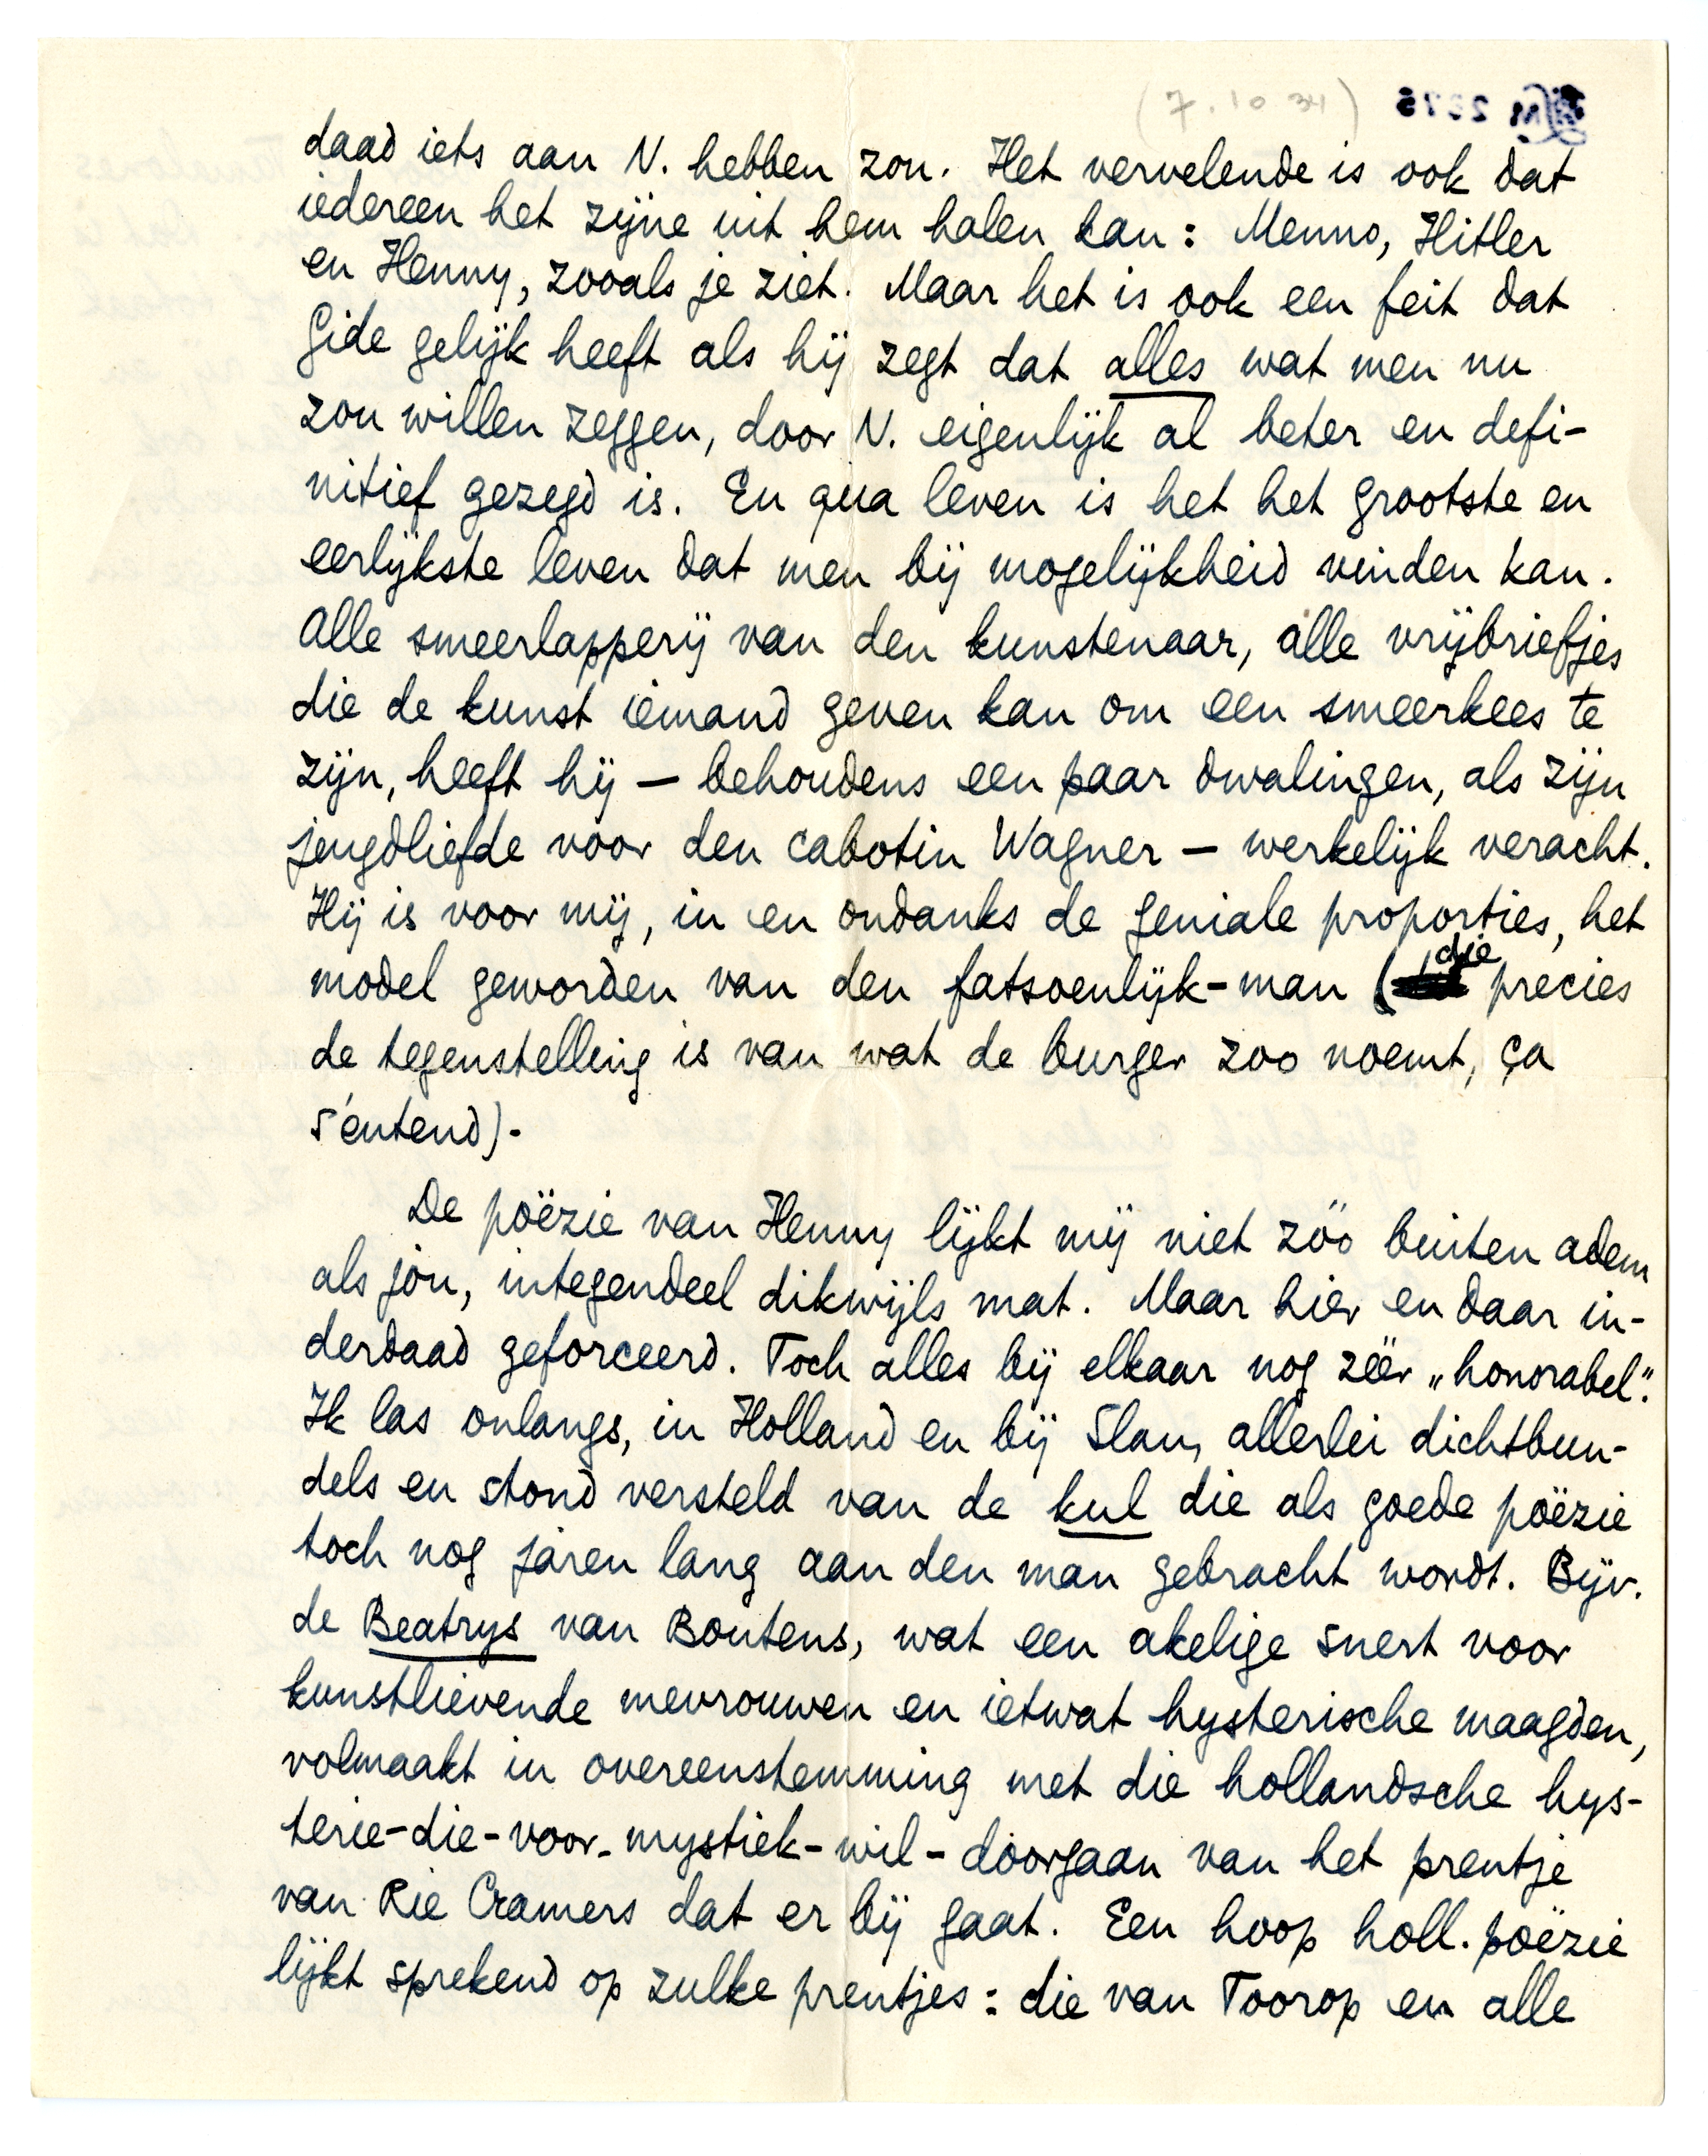 (7.10 34)
daad iets aan N. hebben zou. Het vervelende is ook dat
iedereen het zijne uit hem halen kan: Menno, Hitler
en Henny, zooals je ziet. Maar het is ook een feit dat
Gide gelijk heeft als hij zegt dat alles wat men nu
zou willen zeggen, door N. eigenlijk al beter en defi-
nitief gezegd is. En qua leven is het het grootste en
eerlijkste leven dat men bij mogelijkheid vinden kan.
Alle smeerlapperij van den kunstenaar, alle vrijbriefjes
die de kunst iemand geven kan om een smeerkees te
zijn, heeft hij — behoudens een paar dwalingen, als zijn
jeugdliefde voor den cabotin Wagner — werkelijk veracht.
Hij is voor mij, in en ondanks de geniale proporties, het
model geworden van den fatsoenlijk-man (die precies
de tegenstelling is van wat de burger zoo noemt, ça
s'entend).
De poëzie van Henny lijkt mij niet zóó buiten adem
als jou, integendeel dikwijls mat. Maar hier en daar in-
derdaad geforceerd. Toch alles bij elkaar nog zéér „honorabel".
Ik las onlangs, in Holland en bij Slau, allerlei dichtbun-
dels en stond versteld van de kul die als goede poëzie
toch nog jaren lang aan den man gebracht wordt. Bijv.
de Beatrys van Boutens, wat een akelige snert voor
kunstlievende mevrouwen en ietwat hysterische maagden,
volmaakt in overeenstemming met die hollandsche hys-
terie-die-voor-mystiek-wil-doorgaan van het prentje
van Rie Cramers dat er bij gaat. Een hoop holl. poëzie
lijkt sprekend op zulke prentjes: die van Toorop en alle